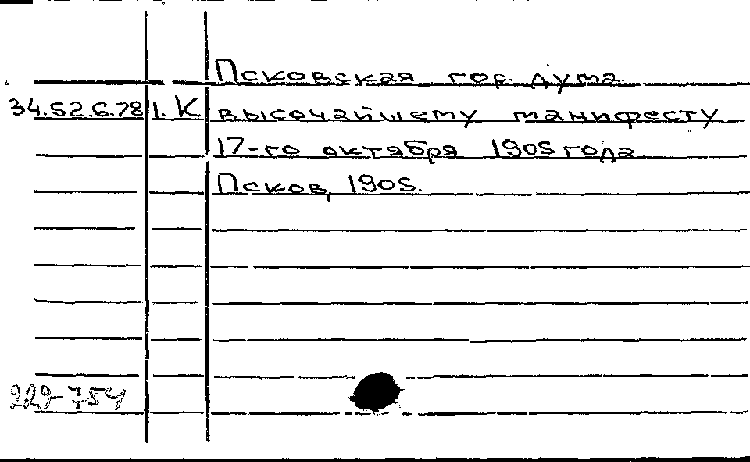 Псковская гор. дума
34.52.6.78 1. К высочайшему манифесту
17-го октября 1905 года
Псков, 1905.
229-754